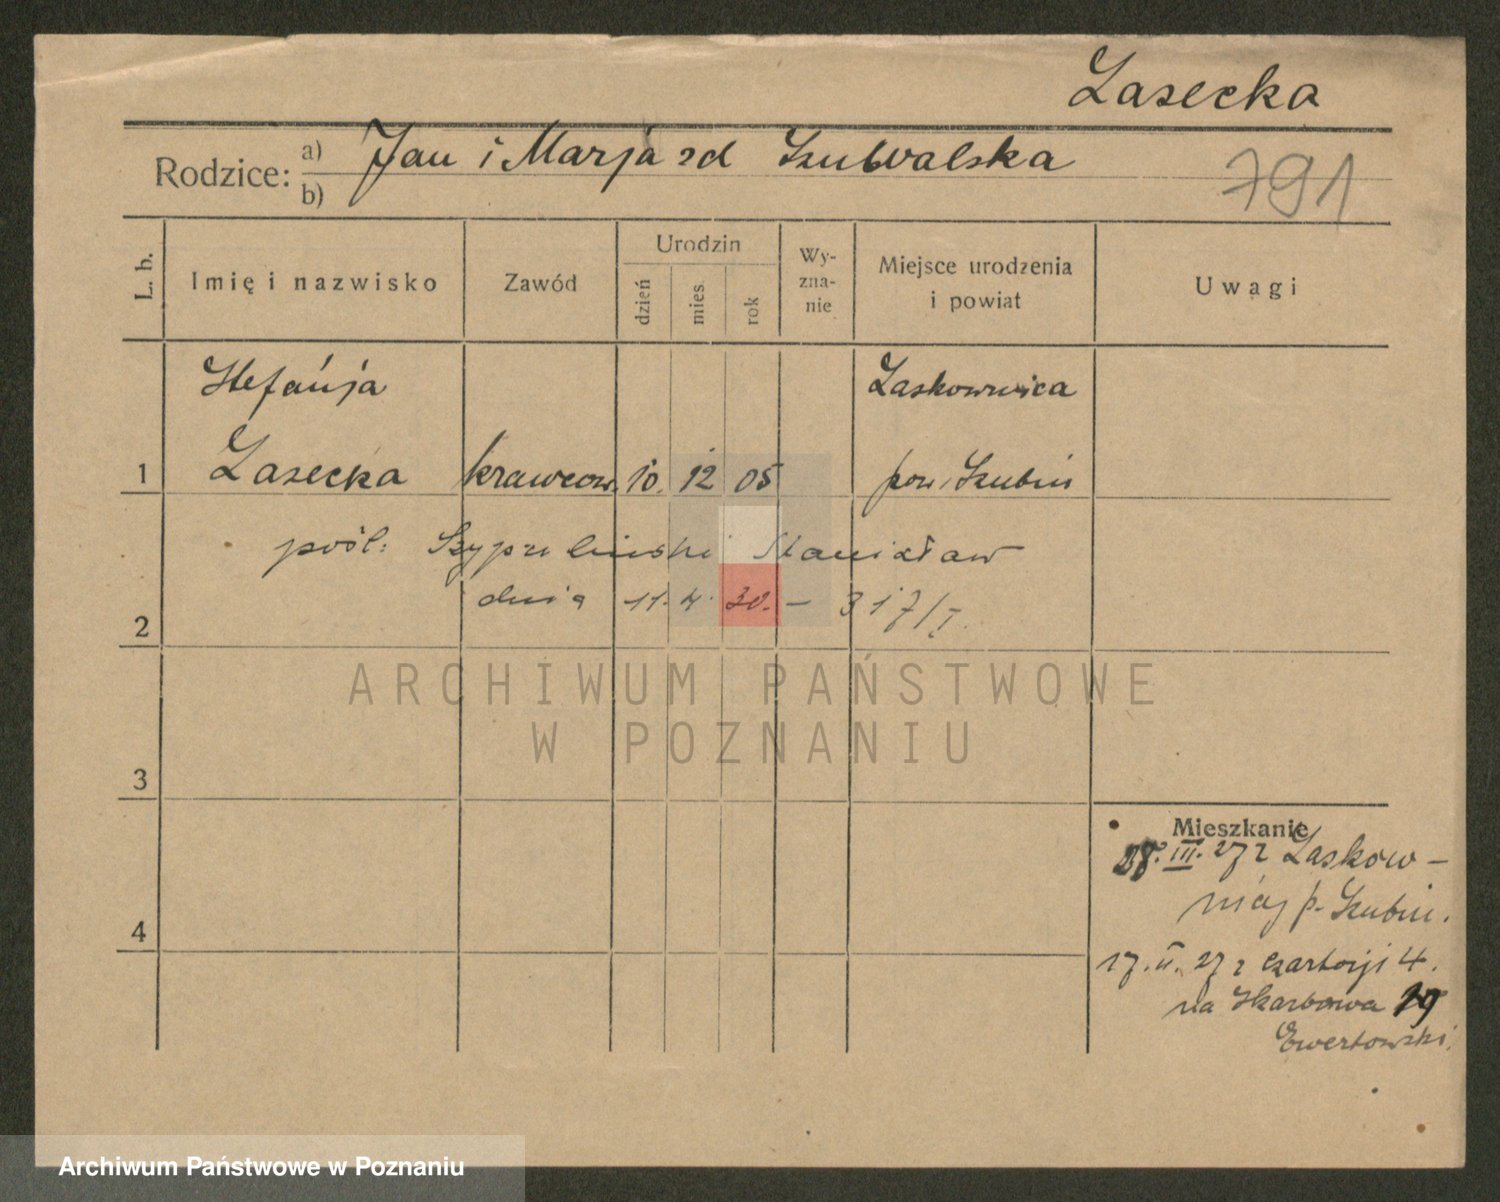 Łasecka
Rodzice: a) Jan i Marja zd Szuwalska
b)
791
L. b.
Imię i nazwisko
Zawód
Urodzin
dzień
mies.
rok
Wy-
zna-
nie
Miejsce urodzenia
i powiat
Uwagi
Stefanja
Łaskownica
1 Łasecka krawcow. 10. 12 05 pow. Szubin
pośl: Stanisław
dnia 11. 4. 30. – 317/I.
2
3
4
Mieszkanie
28. III. 27 z Łaskow-
nicy p. Szubin.
17. II. 27 z 4.
na Skarbowa 19
Ewertowski.
ARCHIWUM PAŃSTWOWE
W POZNANIU
Archiwum Państwowe w Poznaniu